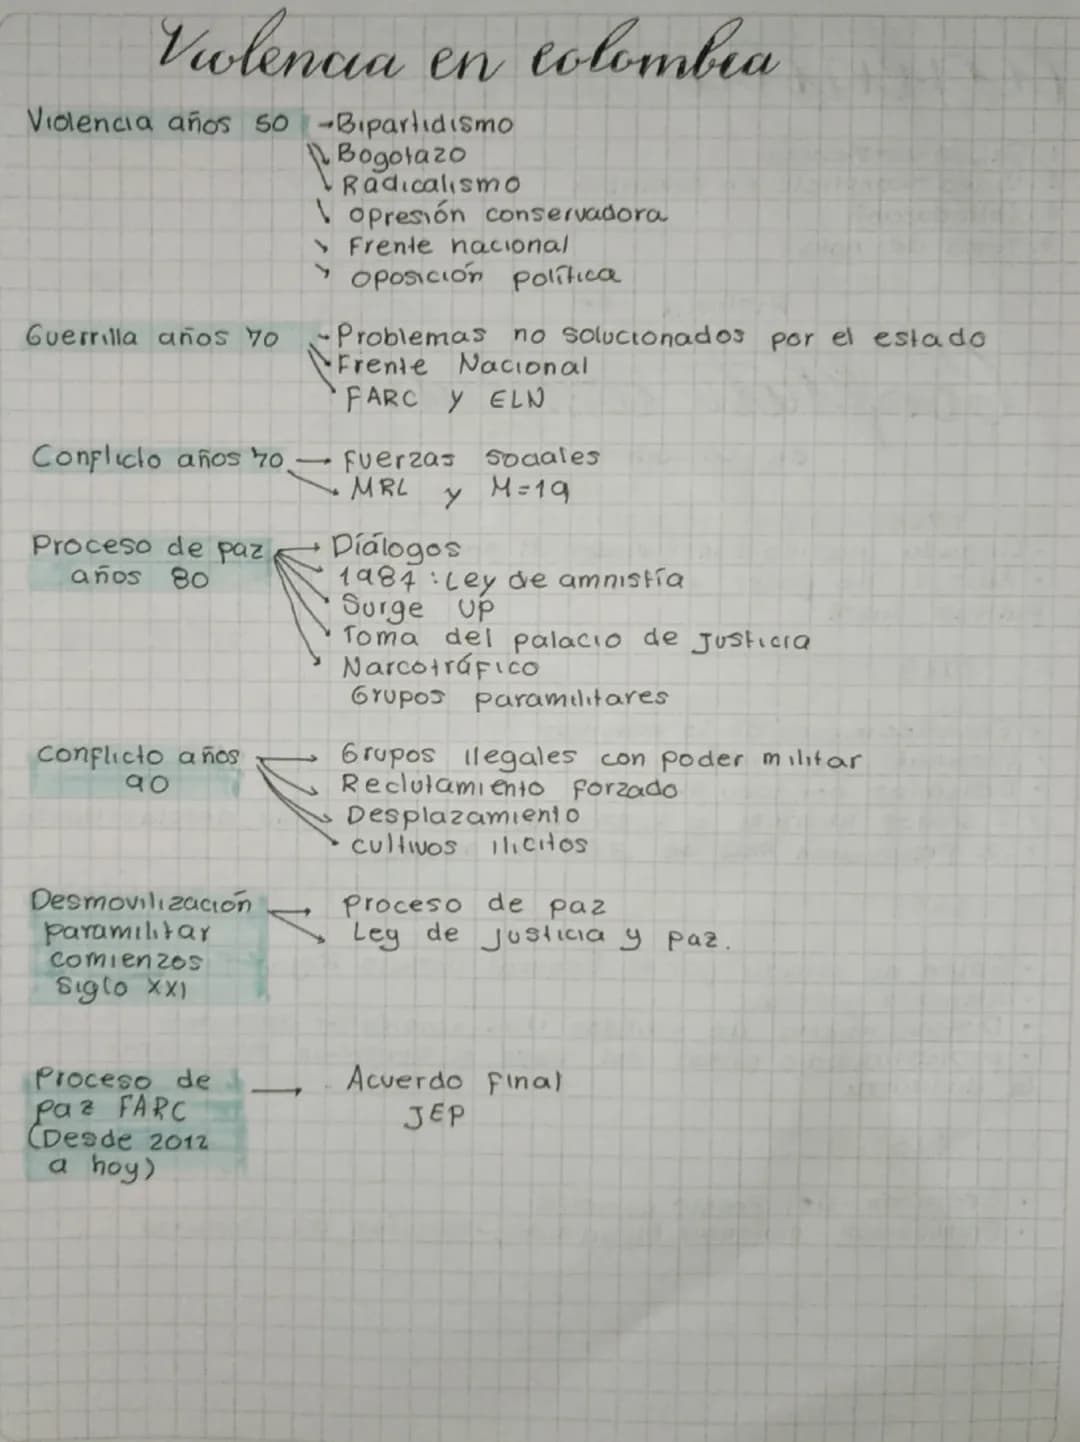 Violencia en colombia
Violencia años 50 → Bipartidismo
Bogotazo
Radicalismo
opresión conservadora
Frente nacional
oposición política
Guerrilla años 70 - Problemas no solucionados por el estado
Frente Nacional
FARC y ELN
Conflicto años 70 → fuerzas sociales
MRL y M=19
Proceso de paz → Díálogos
años 80 1984: Ley de amnistía
Surge UP
Toma del palacio de Justicia
Narcotráfico
Grupos paramilitares
Conflicto años → Grupos ilegales con poder militar
90 Reclutamiento forzado
Desplazamiento
cultivos ilicitos
Desmovilización → proceso de paz
paramilitar Ley de justicia y paz.
comienzos
Siglo XXI
Proceso de → Acuerdo Final
paz FARC JEP
(Desde 2012
a hoy)